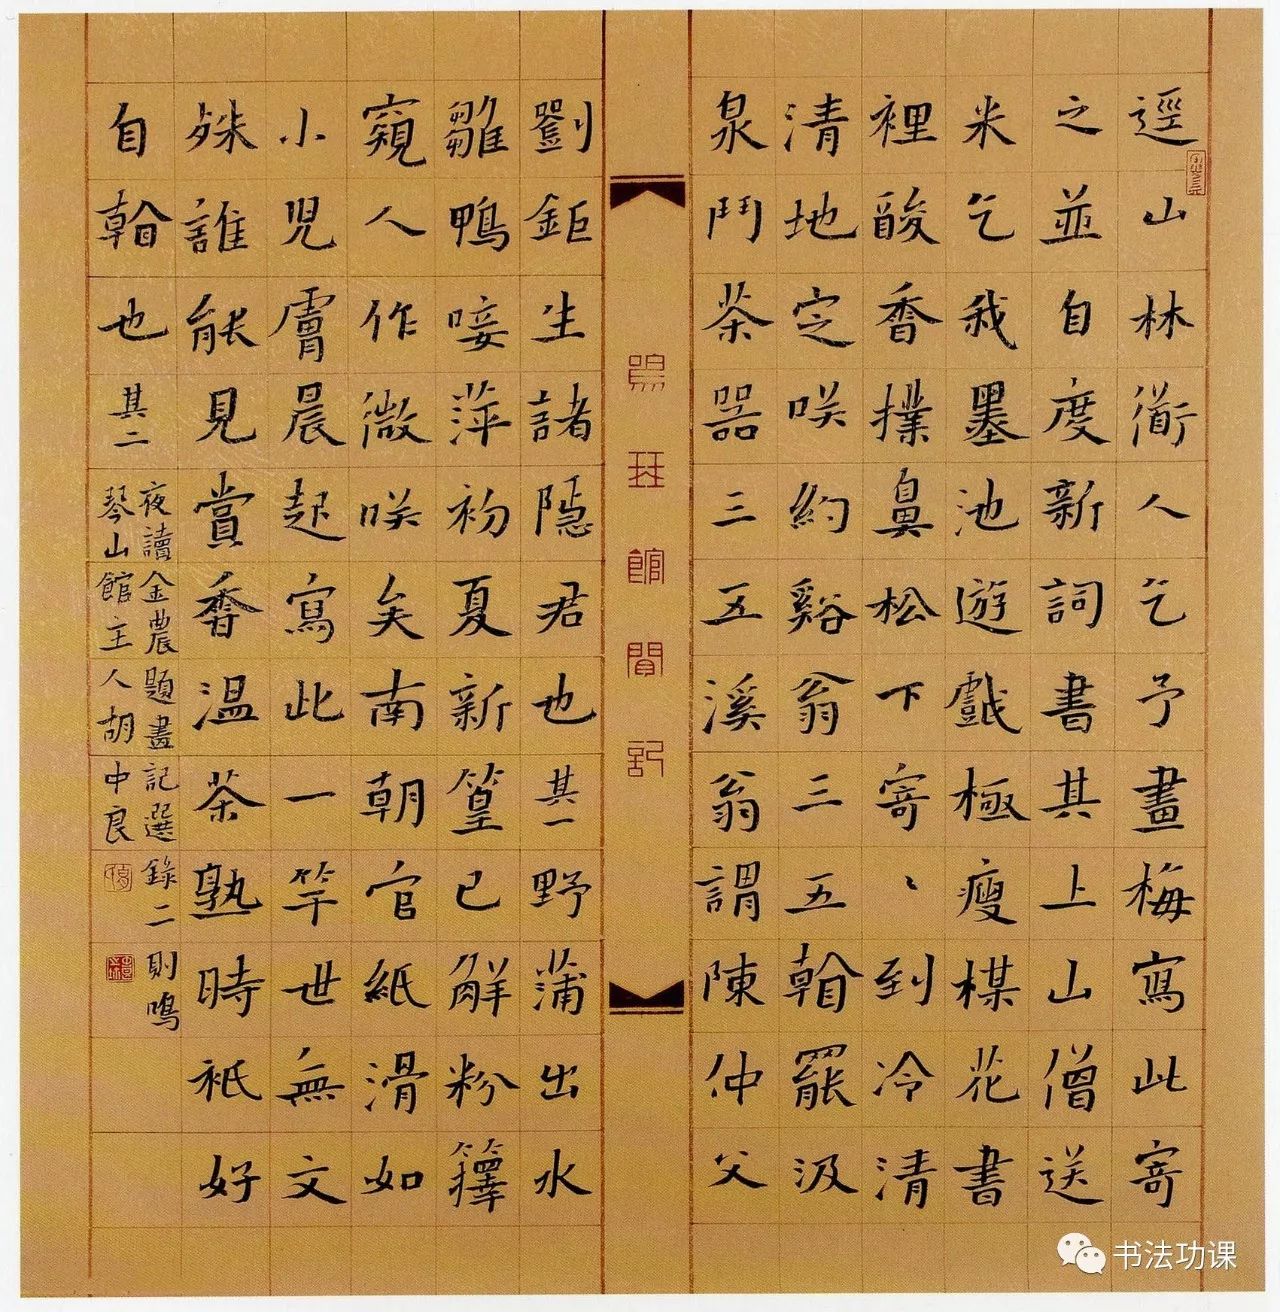 逕山林衜人乞予畫梅寫此寄
之並自度新詞書其上山僧送
米乞我墨池遊戲極瘦楳花書
裡酸香撲鼻松下寄〻到冷清
清地定咲約谿翁三五翰罷汲
泉鬥茶器三五溪翁謂陳仲父
鳴琴館閒記
劉鉅生諸隱君也其一野蒲出水
雛鴨唼萍初夏新篁已解粉籜
窺人作微咲矣南朝官紙滑如
小兒膚晨起寫此一竿世無文
殊誰能見賞香溫茶熟時祇好
自翰也其二
夜讀金農題畫記選錄二則鳴
琴山館主人胡中良
书法功课